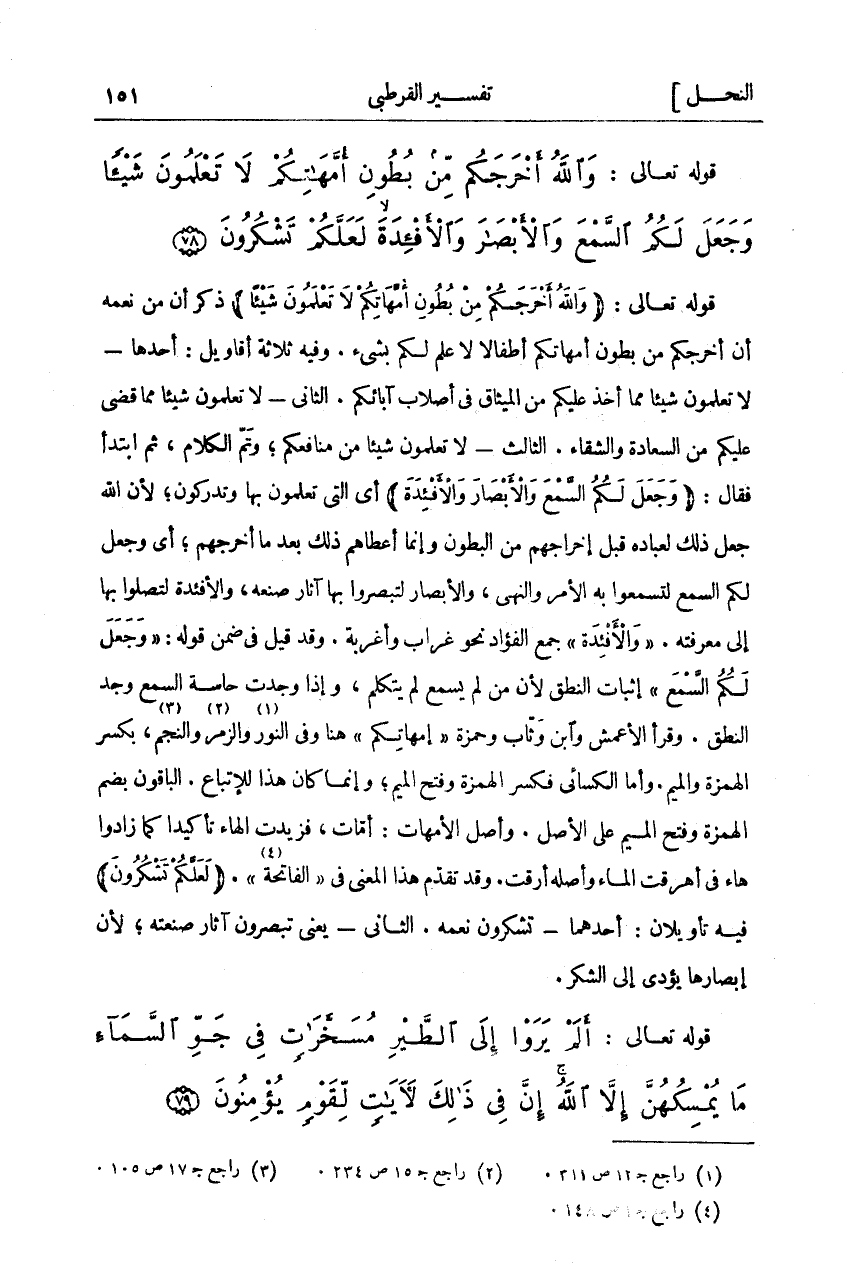 النحـــل ] تفســـير القرطبى ١٥١
قوله تعـالى : وَٱللَّهُ أَخْرَجَكُم مِّنۢ بُطُونِ أُمَّهَٰتِكُمْ لَا تَعْلَمُونَ شَيْـًٔا
وَجَعَلَ لَكُمُ ٱلسَّمْعَ وَٱلْأَبْصَٰرَ وَٱلْأَفْـِٔدَةَ ۙ لَعَلَّكُمْ تَشْكُرُونَ ٧٨
قوله تعـالى : ﴿ وَاللهُ أَخْرَجَكُمْ مِنْ بُطُونِ أُمَّهَاتِكُمْ لَا تَعْلَمُونَ شَيْئًا ﴾ ذكر أن من نعمه
أن أخرجكم من بطون أمهاتكم أطفالا لا علم لكم بشىء . وفيه ثلاثة أقاويل : أحدها –
لا تعلمون شيئا مما أخذ عليكم من الميثاق فى أصلاب آبائكم . الثانى – لا تعلمون شيئا مما قضى
عليكم من السعادة والشقاء . الثالث – لا تعلمون شيئا من منافعكم ؛ وتمّ الكلام ، ثم ابتدأ
فقال : ﴿ وَجَعَلَ لَكُمُ السَّمْعَ وَالْأَبْصَارَ وَالْأَفْئِدَةَ ﴾ أى التى تعلمون بها وتدركون ؛ لأن الله
جعل ذلك لعباده قبل إخراجهم من البطون وإنما أعطاهم ذلك بعد ما أخرجهم ؛ أى وجعل
لكم السمع لتسمعوا به الأمر والنهى ، والأبصار لتبصروا بها آثار صنعه ، والأفئدة لتصلوا بها
إلى معرفته . « وَالْأَفْئِدَة » جمع الفؤاد نحو غراب وأغربة . وقد قيل فى ضمن قوله : « وَجَعَلَ
لَكُمُ السَّمْعَ » إثبات النطق لأن من لم يسمع لم يتكلم ، وإذا وجدت حاسة السمع وجد
النطق . وقرأ الأعمش وٱبن وَثّاب وحمزة « إمهاتكم » هنا وفى النور (١) والزمر (٢) والنجم (٣) ، بكسر
الهمزة والميم . وأما الكسائى فكسر الهمزة وفتح الميم ؛ وإنمـا كان هذا للإتباع . الباقون بضم
الهمزة وفتح المـيم على الأصل . وأصل الأمهات : أمّات ، فزيدت الهاء تأكيدا كما زادوا
هاء فى أهرقت المـاء وأصله أرقت . وقد تقدّم هذا المعنى فى « الفاتحة (٤) » . ﴿ لَعَلَّكُمْ تَشْكُرُونَ ﴾
فيـه تأويلان : أحدهما – تشكرون نعمه . الثـانى – يعنى تبصرون آثار صنعته ؛ لأن
إبصارها يؤدى إلى الشكر .
قوله تعـالى : أَلَمْ يَرَوْا إِلَى ٱلطَّيْرِ مُسَخَّرَٰتٍ فِى جَوِّ ٱلسَّمَآءِ
مَا يُمْسِكُهُنَّ إِلَّا ٱللَّهُ ۚ إِنَّ فِى ذَٰلِكَ لَـَٔايَٰتٍ لِّقَوْمٍ يُؤْمِنُونَ ٧٩
(١) راجع جـ ١٢ ص ٣١١ . (٢) راجع جـ ١٥ ص ٢٣٤ . (٣) راجع جـ ١٧ ص ١٠٥ .
(٤) راجع جـ ١ ص ١٤٨ .